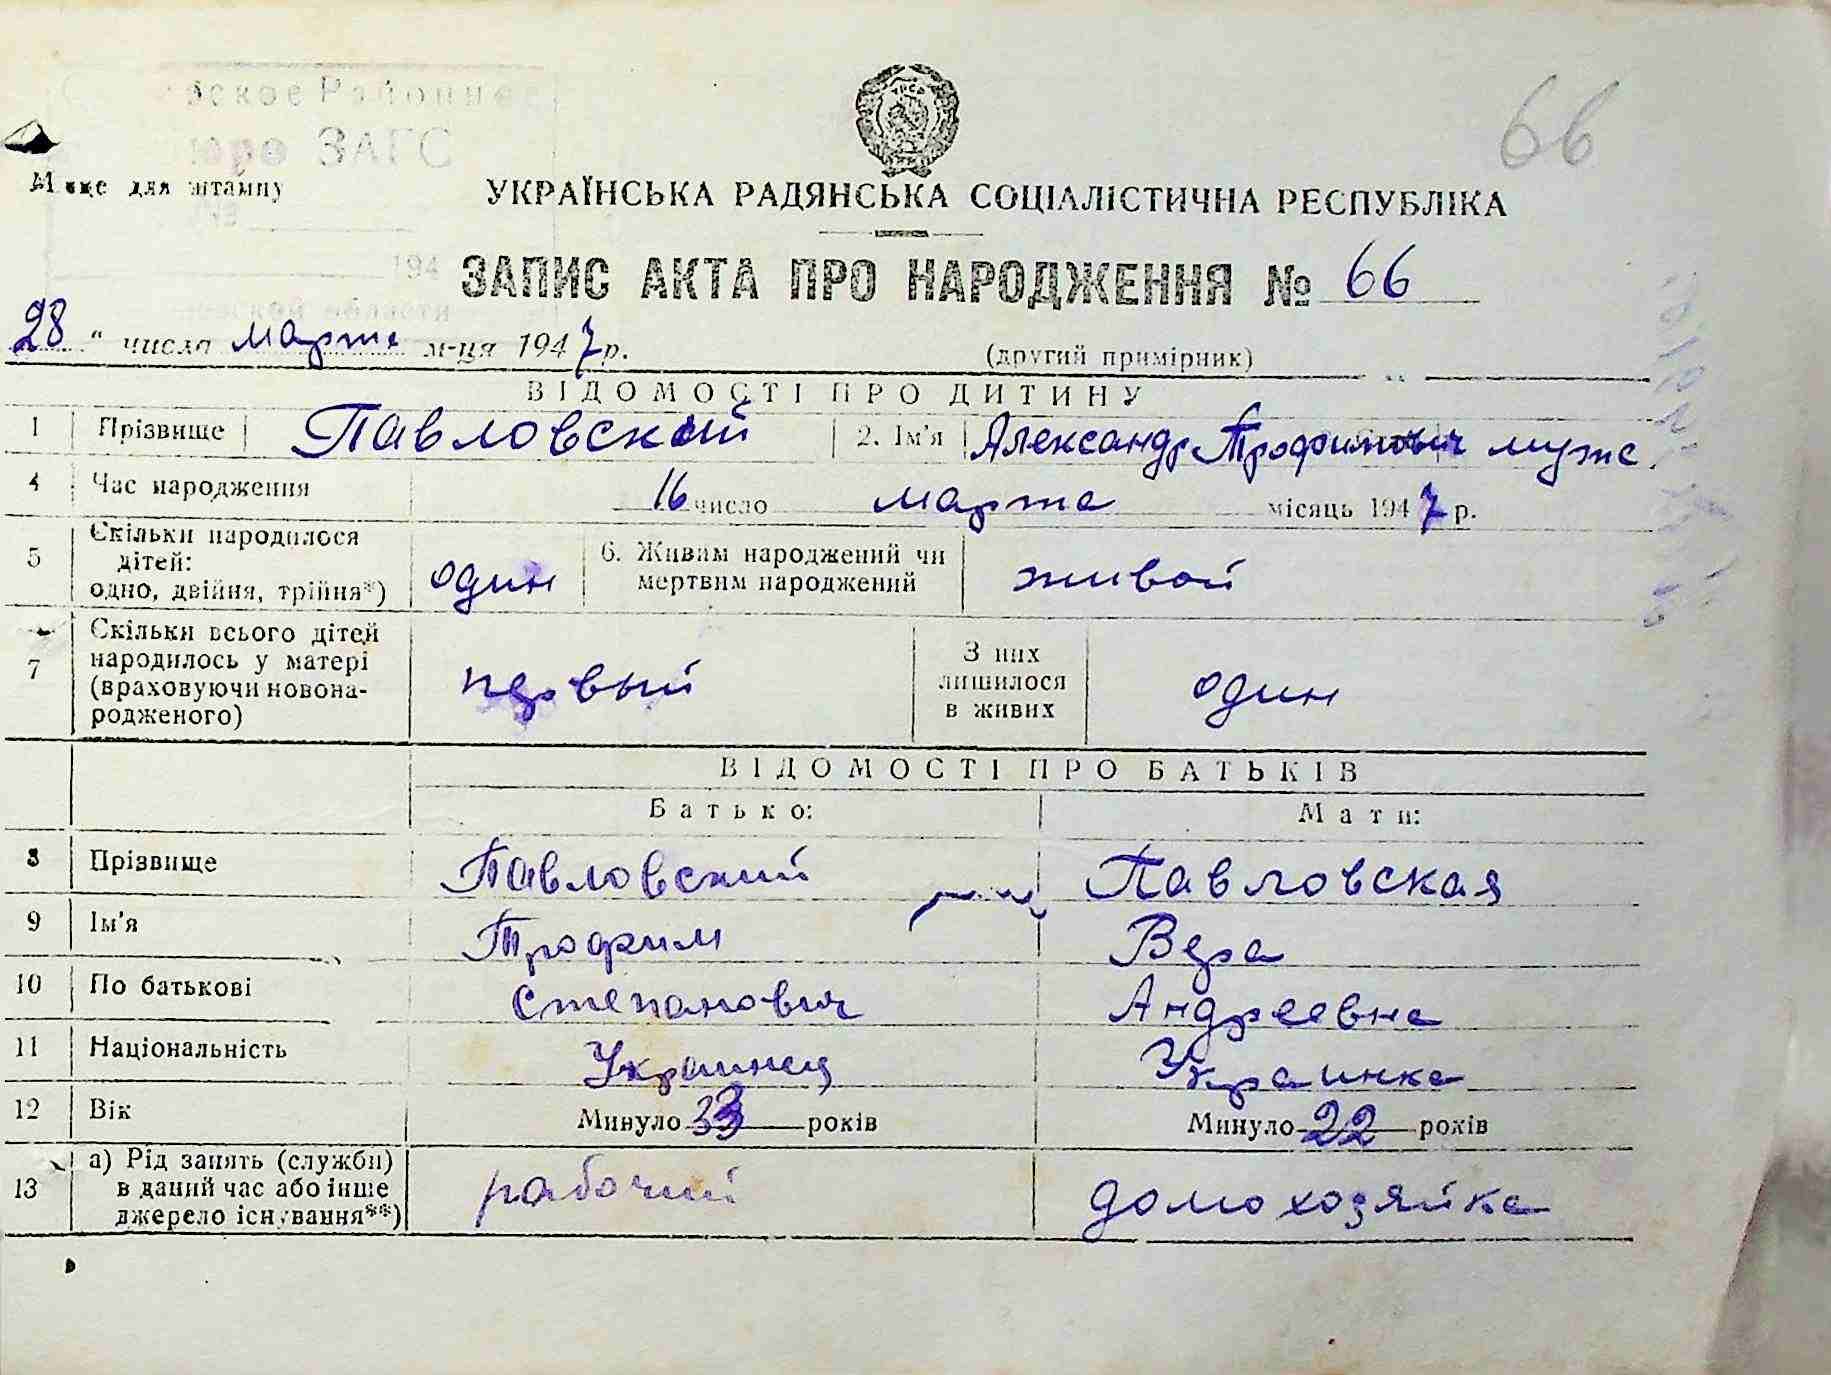 66
Районное
бюро ЗАГС
Місце для штампу
УКРАЇНСЬКА РАДЯНСЬКА СОЦІАЛІСТИЧНА РЕСПУБЛІКА
№
194
ЗАПИС АКТА ПРО НАРОДЖЕННЯ № 66
области
28 " числа марта м-ця 1947 р.
(другий примірник)
ВІДОМОСТІ ПРО ДИТИНУ
1 Прізвище Павловский 2. Ім'я Александр Трофимович муж.
4 Час народження 16 число марта місяць 1947 р.
5 Скільки народилося дітей: одно, двійня, трійня*) один 6. Живим народжений чи мертвим народжений живой
7 Скільки всього дітей народилось у матері (враховуючи новонародженого) первый З них лишилося в живих один
ВІДОМОСТІ ПРО БАТЬКІВ
Батько: Мати:
8 Прізвище Павловский Павловская
9 Ім'я Трофим Вера
10 По батькові Степанович Андреевна
11 Національність Украинец Украинка
12 Вік Минуло 33 років Минуло 22 років
13 а) Рід занять (служби) в даний час або інше джерело існування**) рабочий домохозяйка